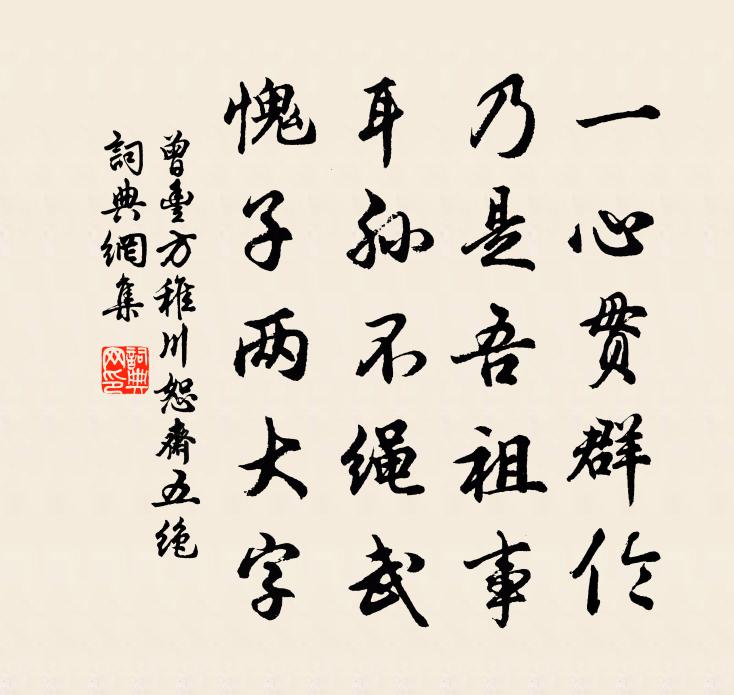 一心貫群伶
乃是吾祖事
耳孫不繩武
愧子两大字
曾豐方稚川恕齋五绝
詞典網集
詞典网印